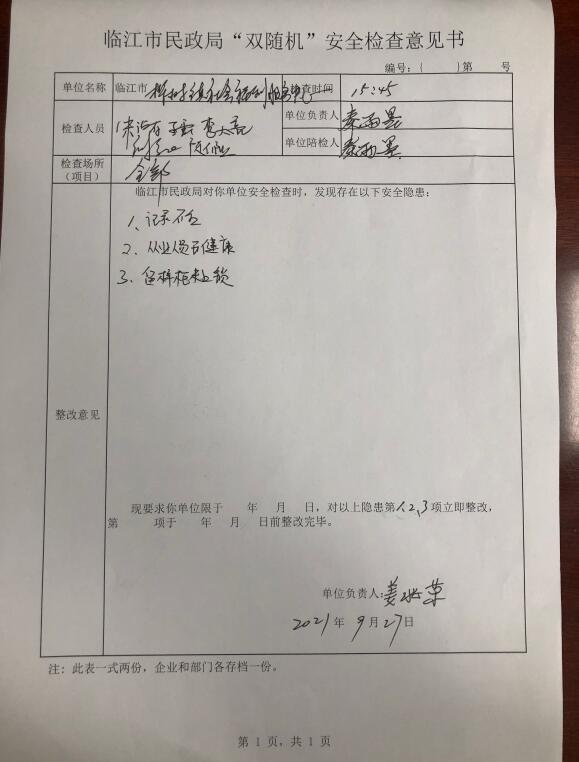 临江市民政局“双随机”安全检查意见书
编号:( )第 号
单位名称 临江市 社会福利服务中心 检查时间 15:45
检查人员
单位负责人
单位陪检人
检查场所
(项目) 全部
临江市民政局对你单位安全检查时,发现存在以下安全隐患:
1、记录不全
2、从业人员 健康
3、留样柜未上锁
整改意见
现要求你单位限于 年 月 日,对以上隐患第1.2.3项立即整改,
第 项于 年 月 日前整改完毕。
单位负责人:姜
2021年 9月27日
注: 此表一式两份, 企业和部门各存档一份。
第 1 页, 共 1 页